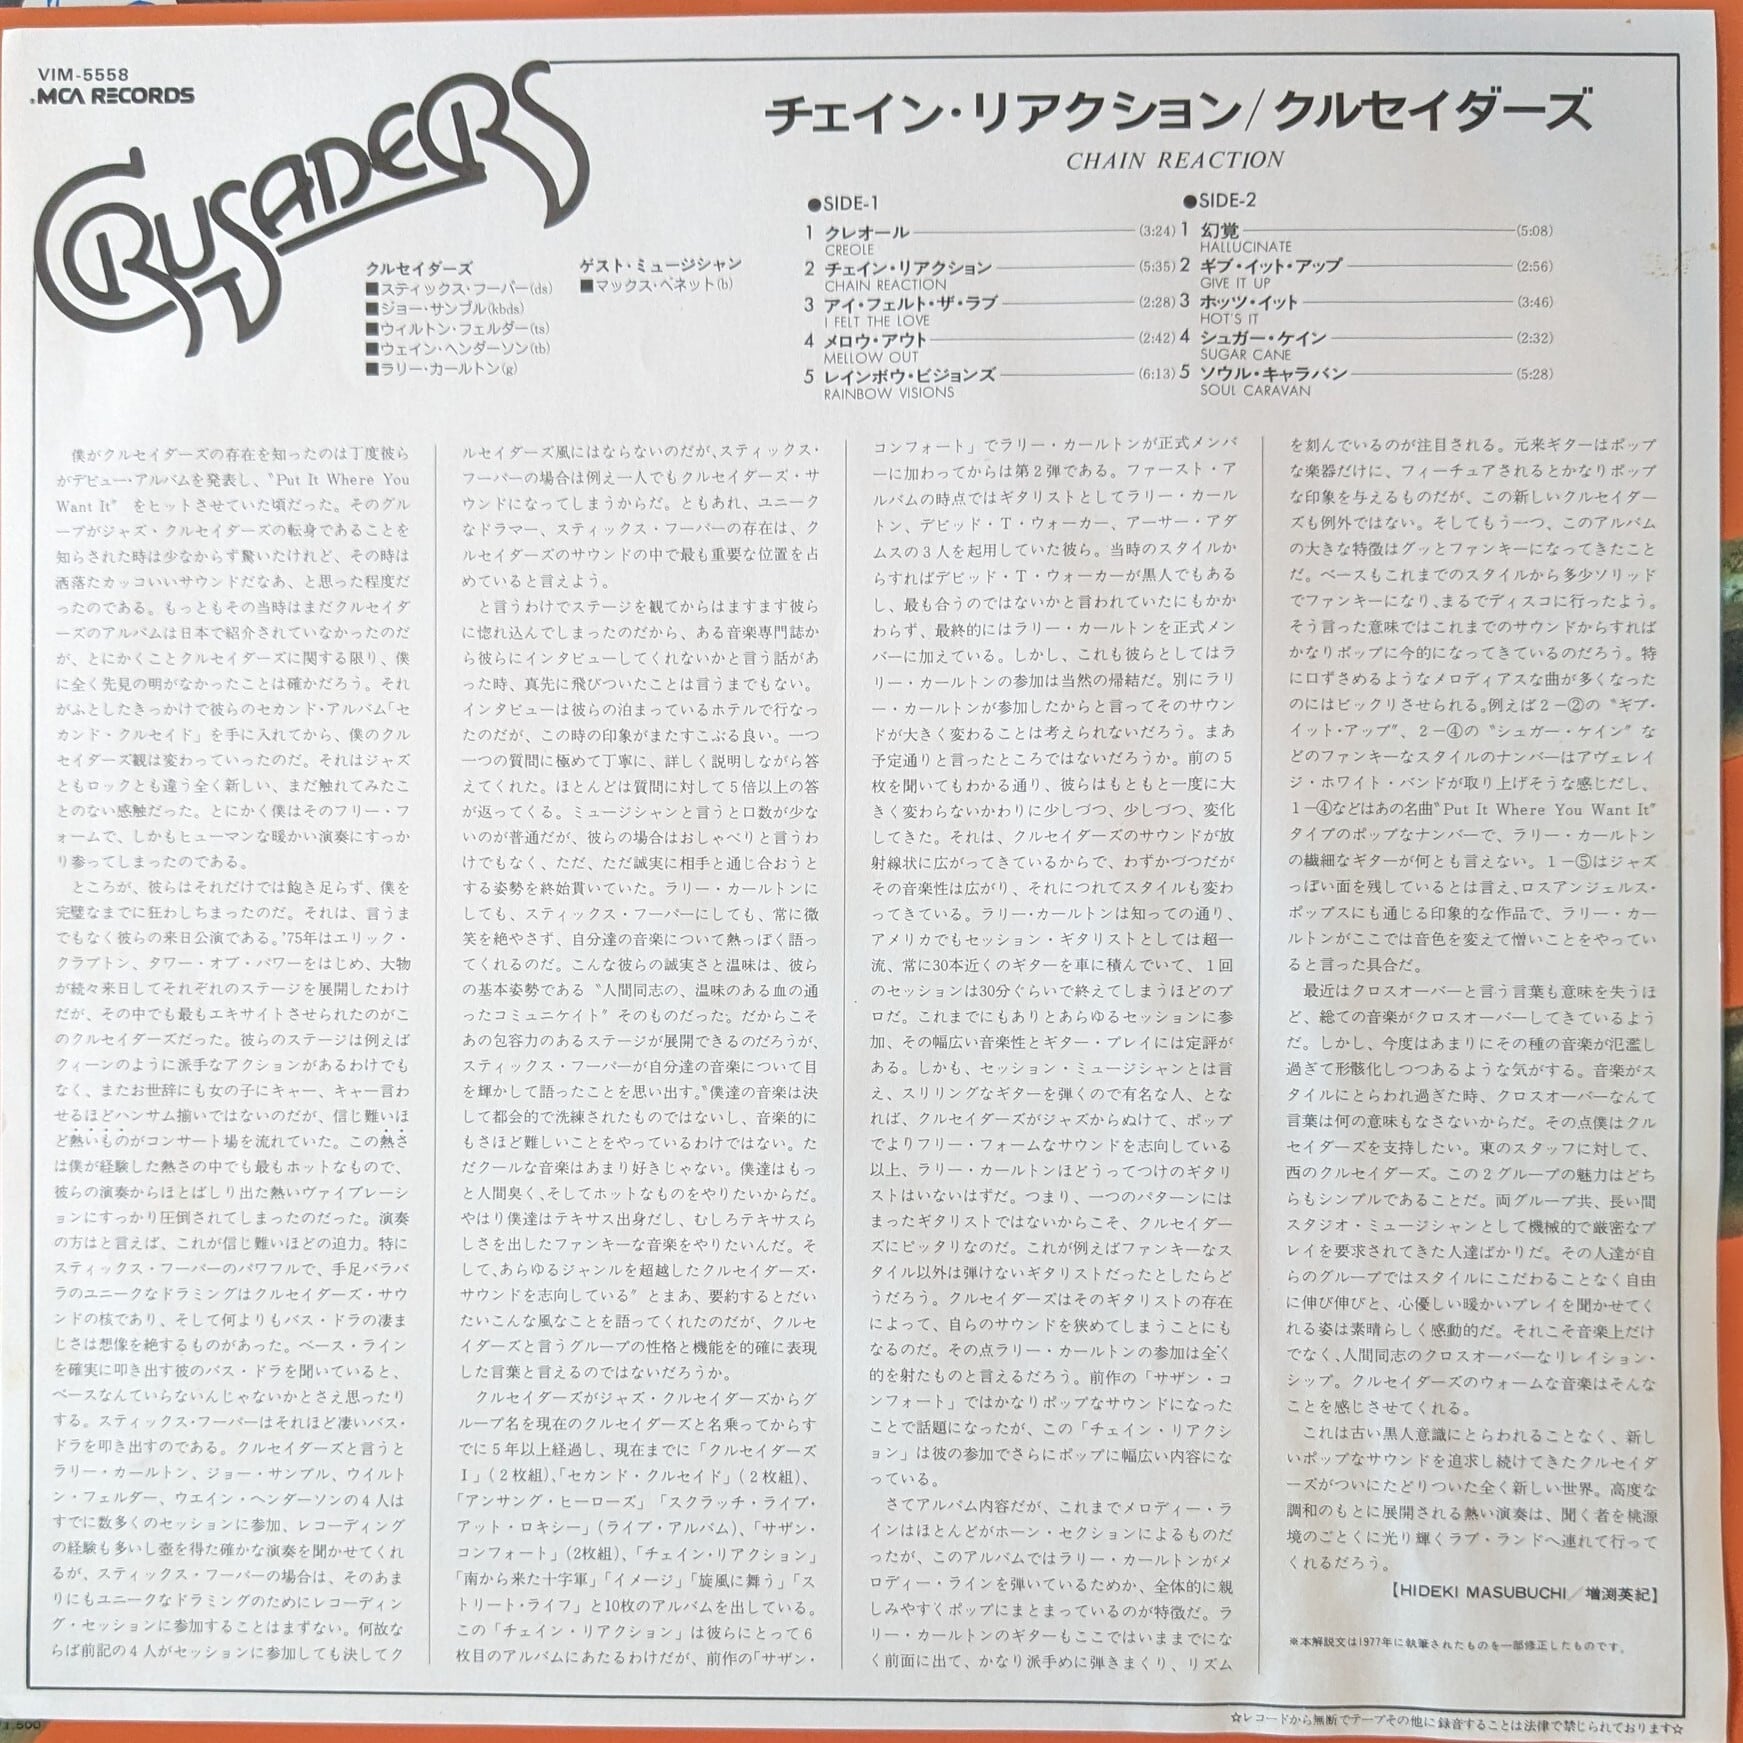 VIM-5558
MCA RECORDS
CRUSADERS
チェイン・リアクション/クルセイダーズ
CHAIN REACTION
クルセイダーズ
■スティックス・フーパー(ds)
■ジョー・サンプル(kbds)
■ウィルトン・フェルダー(ts)
■ウェイン・ヘンダーソン(tb)
■ラリー・カールトン(g)
ゲスト・ミュージシャン
■マックス・ベネット(b)
●SIDE-1
1 クレオール (3:24)
CREOLE
2 チェイン・リアクション (5:35)
CHAIN REACTION
3 アイ・フェルト・ザ・ラブ (2:28)
I FELT THE LOVE
4 メロウ・アウト (2:42)
MELLOW OUT
5 レインボウ・ビジョンズ (6:13)
RAINBOW VISIONS
●SIDE-2
1 幻覚 (5:08)
HALLUCINATE
2 ギブ・イット・アップ (2:56)
GIVE IT UP
3 ホッツ・イット (3:46)
HOT'S IT
4 シュガー・ケイン (2:32)
SUGAR CANE
5 ソウル・キャラバン (5:28)
SOUL CARAVAN
僕がクルセイダーズの存在を知ったのは丁度彼ら
がデビュー・アルバムを発表し、〝Put It Where You
Want It〟 をヒットさせていた頃だった。そのグル
ープがジャズ・クルセイダーズの転身であることを
知らされた時は少なからず驚いたけれど、その時は
洒落たカッコいいサウンドだなあ、と思った程度だ
ったのである。もっともその当時はまだクルセイダ
ーズのアルバムは日本で紹介されていなかったのだ
が、とにかくことクルセイダーズに関する限り、僕
に全く先見の明がなかったことは確かだろう。それ
がふとしたきっかけで彼らのセカンド・アルバム「セ
カンド・クルセイド」を手に入れてから、僕のクル
セイダーズ観は変わっていったのだ。それはジャズ
ともロックとも違う全く新しい、まだ触れてみたこ
とのない感触だった。とにかく僕はそのフリー・フ
ォームで、しかもヒューマンな暖かい演奏にすっか
り参ってしまったのである。
ところが、彼らはそれだけでは飽き足らず、僕を
完璧なまでに狂わしちまったのだ。それは、言うま
でもなく彼らの来日公演である。'75年はエリック・
クラプトン、タワー・オブ・パワーをはじめ、大物
が続々来日してそれぞれのステージを展開したわけ
だが、その中でも最もエキサイトさせられたのがこ
のクルセイダーズだった。彼らのステージは例えば
クィーンのように派手なアクションがあるわけでも
なく、またお世辞にも女の子にキャー、キャー言わ
せるほどハンサム揃いではないのだが、信じ難いほ
ど熱いものがコンサート場を流れていた。この熱さ
は僕が経験した熱さの中でも最もホットなもので、
彼らの演奏からほとばしり出た熱いヴァイブレーシ
ョンにすっかり圧倒されてしまったのだった。演奏
の方はと言えば、これが信じ難いほどの迫力。特に
スティックス・フーパーのパワフルで、手足バラバ
ラのユニークなドラミングはクルセイダーズ・サウ
ンドの核であり、そして何よりもバス・ドラの凄ま
じさは想像を絶するものがあった。ベース・ライン
を確実に叩き出す彼のバス・ドラを聞いていると、
ベースなんていらないんじゃないかとさえ思ったり
する。スティックス・フーパーはそれほど凄いバス・
ドラを叩き出すのである。クルセイダーズと言うと
ラリー・カールトン、ジョー・サンプル、ウイルト
ン・フェルダー、ウエイン・ヘンダーソンの4人は
すでに数多くのセッションに参加、レコーディング
の経験も多いし壺を得た確かな演奏を聞かせてくれ
るが、スティックス・フーパーの場合は、そのあま
りにもユニークなドラミングのためにレコーディン
グ・セッションに参加することはまずない。何故な
らば前記の4人がセッションに参加しても決してク
ルセイダーズ風にはならないのだが、スティックス・
フーパーの場合は例え一人でもクルセイダーズ・サ
ウンドになってしまうからだ。ともあれ、ユニーク
なドラマー、スティックス・フーパーの存在は、ク
ルセイダーズのサウンドの中で最も重要な位置を占
めていると言えよう。
と言うわけでステージを観てからはますます彼ら
に惚れ込んでしまったのだから、ある音楽専門誌か
ら彼らにインタビューしてくれないかと言う話があ
った時、真先に飛びついたことは言うまでもない。
インタビューは彼らの泊まっているホテルで行なっ
たのだが、この時の印象がまたすこぶる良い。一つ
一つの質問に極めて丁寧に、詳しく説明しながら答
えてくれた。ほとんどは質問に対して5倍以上の答
が返ってくる。ミュージシャンと言うと口数が少な
いのが普通だが、彼らの場合はおしゃべりと言うわ
けでもなく、ただ、ただ誠実に相手と通じ合おうと
する姿勢を終始貫いていた。ラリー・カールトンに
しても、スティックス・フーパーにしても、常に微
笑を絶やさず、自分達の音楽について熱っぽく語っ
てくれるのだ。こんな彼らの誠実さと温味は、彼ら
の基本姿勢である〝人間同志の、温味のある血の通
ったコミュニケイト〟そのものだった。だからこそ
あの包容力のあるステージが展開できるのだろうが、
スティックス・フーパーが自分達の音楽について目
を輝かして語ったことを思い出す。〝僕達の音楽は決
して都会的で洗練されたものではないし、音楽的に
もさほど難しいことをやっているわけではない。た
だクールな音楽はあまり好きじゃない。僕達はもっ
と人間臭く、そしてホットなものをやりたいからだ。
やはり僕達はテキサス出身だし、むしろテキサスら
しさを出したファンキーな音楽をやりたいんだ。そ
して、あらゆるジャンルを超越したクルセイダーズ・
サウンドを志向している〟とまあ、要約するとだい
たいこんな風なことを語ってくれたのだが、クルセ
イダーズと言うグループの性格と機能を的確に表現
した言葉と言えるのではないだろうか。
クルセイダーズがジャズ・クルセイダーズからグ
ループ名を現在のクルセイダーズと名乗ってからす
でに5年以上経過し、現在までに「クルセイダーズ
I」(2枚組)、「セカンド・クルセイド」(2枚組)、
「アンサング・ヒーローズ」「スクラッチ・ライブ・
アット・ロキシー」(ライブ・アルバム)、「サザン・
コンフォート」(2枚組)、「チェイン・リアクション」
「南から来た十字軍」「イメージ」「旋風に舞う」「ス
トリート・ライフ」と10枚のアルバムを出している。
この「チェイン・リアクション」は彼らにとって6
枚目のアルバムにあたるわけだが、前作の「サザン・
コンフォート」でラリー・カールトンが正式メンバ
ーに加わってからは第2弾である。ファースト・ア
ルバムの時点ではギタリストとしてラリー・カール
トン、デビッド・T・ウォーカー、アーサー・アダ
ムスの3人を起用していた彼ら。当時のスタイルか
らすればデビッド・T・ウォーカーが黒人でもある
し、最も合うのではないかと言われていたにもかか
わらず、最終的にはラリー・カールトンを正式メン
バーに加えている。しかし、これも彼らとしてはラ
リー・カールトンの参加は当然の帰結だ。別にラリ
ー・カールトンが参加したからと言ってそのサウン
ドが大きく変わることは考えられないだろう。まあ
予定通りと言ったところではないだろうか。前の5
枚を聞いてもわかる通り、彼らはもともと一度に大
きく変わらないかわりに少しづつ、少しづつ、変化
してきた。それは、クルセイダーズのサウンドが放
射線状に広がってきているからで、わずかづつだが
その音楽性は広がり、それにつれてスタイルも変わ
ってきている。ラリー・カールトンは知っての通り、
アメリカでもセッション・ギタリストとしては超一
流、常に30本近くのギターを車に積んでいて、1回
のセッションは30分ぐらいで終えてしまうほどのプ
ロだ。これまでにもありとあらゆるセッションに参
加、その幅広い音楽性とギター・プレイには定評が
ある。しかも、セッション・ミュージシャンとは言
え、スリリングなギターを弾くので有名な人、とな
れば、クルセイダーズがジャズからぬけて、ポップ
でよりフリー・フォームなサウンドを志向している
以上、ラリー・カールトンほどうってつけのギタリ
ストはいないはずだ。つまり、一つのパターンには
まったギタリストではないからこそ、クルセイダー
ズにピッタリなのだ。これが例えばファンキーなス
タイル以外は弾けないギタリストだったとしたらど
うだろう。クルセイダーズはそのギタリストの存在
によって、自らのサウンドを狭めてしまうことにも
なるのだ。その点ラリー・カールトンの参加は全く
的を射たものと言えるだろう。前作の「サザン・コ
ンフォート」ではかなりポップなサウンドになった
ことで話題になったが、この「チェイン・リアクシ
ョン」は彼の参加でさらにポップに幅広い内容にな
っている。
さてアルバム内容だが、これまでメロディー・ラ
インはほとんどがホーン・セクションによるものだ
ったが、このアルバムではラリー・カールトンがメ
ロディー・ラインを弾いているためか、全体的に親
しみやすくポップにまとまっているのが特徴だ。ラ
リー・カールトンのギターもここではいままでにな
く前面に出て、かなり派手めに弾きまくり、リズム
を刻んでいるのが注目される。元来ギターはポップ
な楽器だけに、フィーチュアされるとかなりポップ
な印象を与えるものだが、この新しいクルセイダー
ズも例外ではない。そしてもう一つ、このアルバム
の大きな特徴はグッとファンキーになってきたこと
だ。ベースもこれまでのスタイルから多少ソリッド
でファンキーになり、まるでディスコに行ったよう。
そう言った意味ではこれまでのサウンドからすれば
かなりポップに今的になってきているのだろう。特
に口ずさめるようなメロディアスな曲が多くなった
のにはビックリさせられる。例えば2−②の〝ギブ・
イット・アップ〟、2−④の〝シュガー・ケイン〟な
どのファンキーなスタイルのナンバーはアヴェレイ
ジ・ホワイト・バンドが取り上げそうな感じだし、
1−④などはあの名曲〝Put It Where You Want It〟
タイプのポップなナンバーで、ラリー・カールトン
の繊細なギターが何とも言えない。1−⑤はジャズ
っぽい面を残しているとは言え、ロスアンジェルス・
ポップスにも通じる印象的な作品で、ラリー・カー
ルトンがここでは音色を変えて憎いことをやってい
ると言った具合だ。
最近はクロスオーバーと言う言葉も意味を失うほ
ど、総ての音楽がクロスオーバーしてきているよう
だ。しかし、今度はあまりにその種の音楽が氾濫し
過ぎて形骸化しつつあるような気がする。音楽がス
タイルにとらわれ過ぎた時、クロスオーバーなんて
言葉は何の意味もなさないからだ。その点僕はクル
セイダーズを支持したい。東のスタッフに対して、
西のクルセイダーズ。この2グループの魅力はどち
らもシンプルであることだ。両グループ共、長い間
スタジオ・ミュージシャンとして機械的で厳密なプ
レイを要求されてきた人達ばかりだ。その人達が自
らのグループではスタイルにこだわることなく自由
に伸び伸びと、心優しい暖かいプレイを聞かせてく
れる姿は素晴らしく感動的だ。それこそ音楽上だけ
でなく、人間同志のクロスオーバーなリレイション・
シップ。クルセイダーズのウォームな音楽はそんな
ことを感じさせてくれる。
これは古い黒人意識にとらわれることなく、新し
いポップなサウンドを追求し続けてきたクルセイダ
ーズがついにたどりついた全く新しい世界。高度な
調和のもとに展開される熱い演奏は、聞く者を桃源
境のごとくに光り輝くラブ・ランドへ連れて行って
くれるだろう。
【HIDEKI MASUBUCHI/増渕英紀】
※本解説文は1977年に執筆されたものを一部修正したものです。
☆レコードから無断でテープその他に録音することは法律で禁じられております☆
1,500